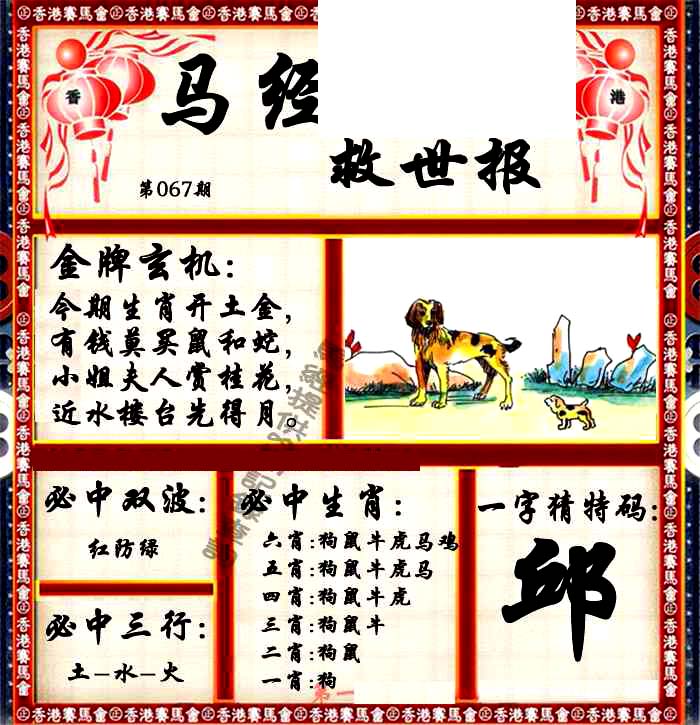 香港賽馬會
香 港
马经
救世报
第067期
金牌玄机:
今期生肖开土金,
有钱莫买鼠和蛇,
小姐夫人赏桂花,
近水楼台先得月。
必中双波:
红防绿
必中三行:
土-水-火
必中生肖:
六肖:狗鼠牛虎马鸡
五肖:狗鼠牛虎马
四肖:狗鼠牛虎
三肖:狗鼠牛
二肖:狗鼠
一肖:狗
第一
一字猜特码:
邱